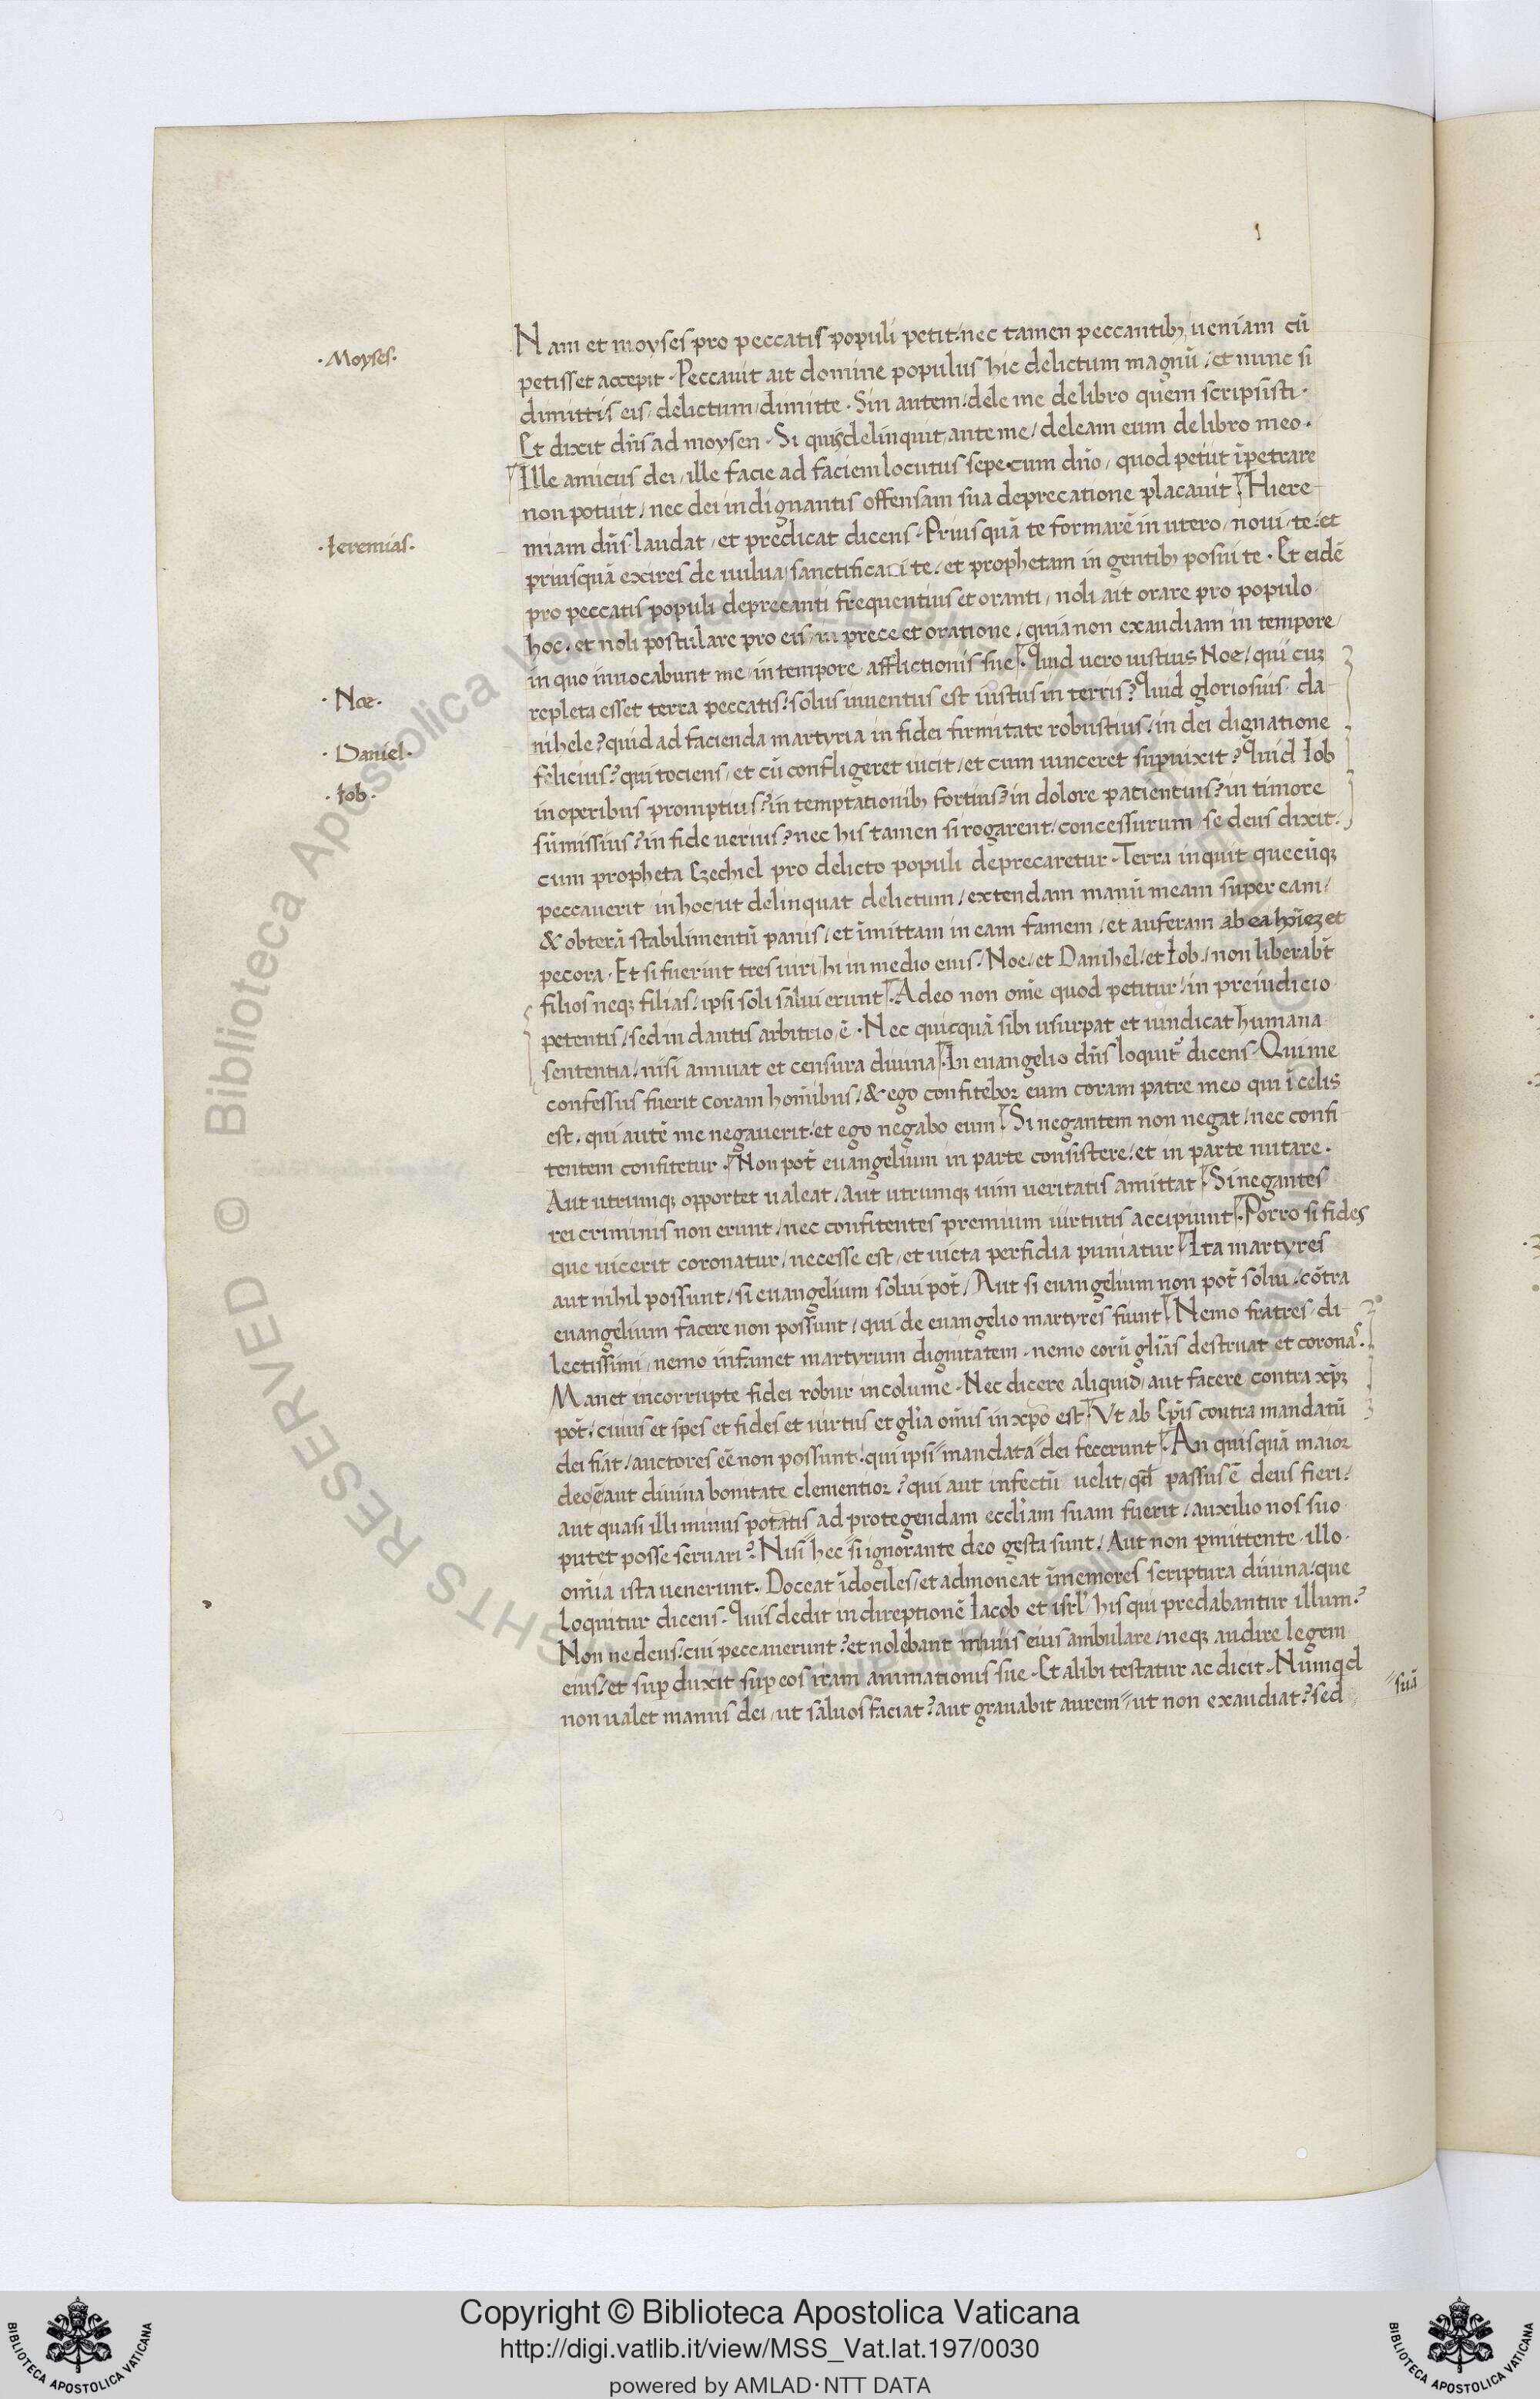 Nam et moyses pro peccatis populi petit. nec tamen peccantib; ueniam cū
·Moyses·
petisset accepit · Peccauit ait domine populus hic delictum magnū / et nunc si
dimittis eis / delictum / dimitte · Sin autem / dele me de libro quem scripsisti ·
Et dixit dñs ad moysen · Si quis delinquit ante me / deleam eum de libro meo ·
Ille amicus dei / ille facie ad faciem locutus sepe cum dño / quod petiit īpetrare
non potuit / nec dei indignantis offensam sua deprecatione placauit · Hiere-
·Ieremias·
miam dñs laudat / et predicat dicens · Priusquā te formarē in utero / noui te / et
priusquā exires de uulua sanctificaui te / et prophetam in gentib; posui te · Et eidē
pro peccatis populi deprecanti frequentius et oranti / noli ait orare pro populo
hoc / et noli postulare pro eis / in prece et oratione / quia non exaudiam in tempore /
in quo inuocabunt me / in tempore afflictionis sue · Quid uero iustius Noe / qui cuȝ
· Noe ·
repleta esset terra peccatis / solus inuentus est iustus in terris? Quid gloriosius da-
· Daniel ·
nihele? quid ad facienda martyria in fidei firmitate robustius / in dei dignatione
felicius? qui tociens / et cū confligeret uicit / et cum uinceret supuixit? Quid Iob
· Iob ·
in operibus promptius? in temptationib; fortius? in dolore patientius? in timore
sūmissius? in fide uerius? nec his tamen si rogarent / concessurum se deus dixit ·
cum propheta Ezechiel pro delicto populi deprecaretur · Terra inquit quecūqȝ
peccauerit in hoc / ut delinquat delictum / extendam manū meam super eam /
& obterā stabilimentū panis / et īmittam in eam famem / et auferam ab ea hoīeȝ et
pecora · Et si fuerint tres uiri hi in medio eius / Noe / et Danihel / et Iob / non liberabt̄
filios neqȝ filias / ipsi soli salui erunt · Adeo non om̄e quod petitur / in preiudicio
petentis / sed in dantis arbitrio ē · Nec quicquā sibi usurpat et uindicat humana
sententia / nisi annuat et censura diuina · In euangelio dñs loquit̄ dicens · Qui me
confessus fuerit coram hominibus / & ego confitebor eum coram patre meo qui ī celis
est · qui autē me negauerit / et ego negabo eum · Si negantem non negat / nec confi-
tentem confitetur · Non pot̄ euangelium in parte consistere / et in parte nutare ·
Aut utrumqȝ opportet ualeat / aut utrumqȝ uim ueritatis amittat · Si negantes
rei criminis non erunt / nec confitentes premium uirtutis accipiunt · Porro si fides
que uicerit coronatur / necesse est / et uicta perfidia puniatur · Ita martyres
aut nihil possunt / si euangelium solui pot̄ / Aut si euangelium non pot̄ solui / cōtra
euangelium facere non possunt / qui de euangelio martyres fiunt · Nemo fratres / di-
lectissimi / nemo infamet martyrum dignitatem · nemo eorū glīas destruat et coronas ·
Manet incorrupte fidei robur incolume · Nec dicere aliquid / aut facere contra xp̄ȝ
pot̄ / cuius et spes et fides et uirtus et glīa om̄is in xp̄o est · Vt ab Ep̄is contra mandatū
dei fiat / auctores eē non possunt / qui ipsi mandata dei fecerunt · An quisquā maior
deo ē aut diuina bonitate clementior? qui aut infectū uelit / qđ passus ē deus fieri /
aut quasi illi minus potatis ad protegendam eccl̄iam suam fuerit / auxilio nos suo
putet posse seruari? Nisi hec si ignorante deo gesta sunt / Aut non pmittente illo
om̄ia ista uenerunt · Doceat īdociles / et admoneat īmemores scriptura diuina / que
loquitur dicens · Quis dedit in direptionē Iacob et isrl̄ his qui predabantur illum?
Non ne deus / cui peccauerunt? et nolebant in uiis eius ambulare / neqȝ audire legem
eius / et sup duxit sup eos iram animationis sue · Et alibi testatur ac dicit · Numqd
non ualet manus dei / ut saluos faciat? aut grauabit aurem // ut non exaudiat? sed
//suā
Copyright © Biblioteca Apostolica Vaticana
http://digi.vatlib.it/view/MSS_Vat.lat.197/0030
powered by AMLAD·NTT DATA
BIBLIOTECA APOSTOLICA VATICANA
BIBLIOTECA APOSTOLICA VATICANA